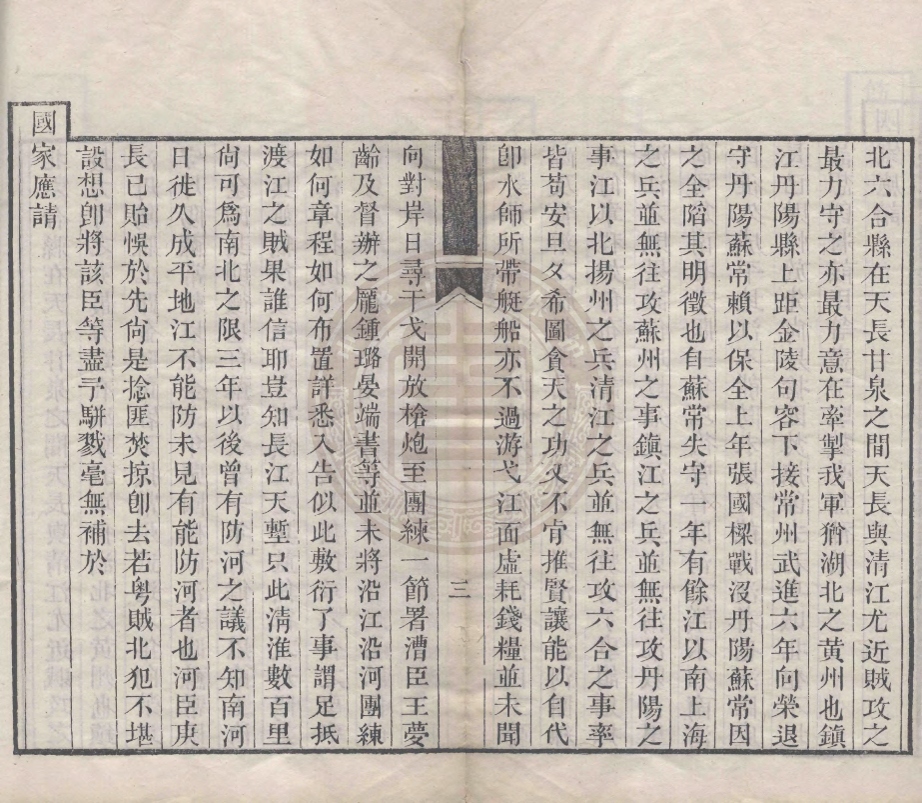 北六合縣在天長甘泉之間天長與清江尤近賊攻之
最力守之亦最力意在牽掣我軍猶湖北之黃州也鎮
江丹陽縣上距金陵句容下接常州武進六年向榮退
守丹陽蘇常賴以保全上年張國樑戰沒丹陽蘇常因
之全陷其明徵也自蘇常失守一年有餘江以南上海
之兵並無往攻蘇州之事鎮江之兵並無往攻丹陽之
事江以北揚州之兵清江之兵並無往攻六合之事率
皆苟安旦夕希圖貪天之功又不肯推賢讓能以自代
卽水師所帶艇船亦不過游弋江面虛耗錢糧並未聞
三
向對岸日尋干戈開放槍炮至團練一節署漕臣王夢
齡及督辦之龐鍾璐晏端書等並未將沿江沿河團練
如何章程如何布置詳悉入告似此敷衍了事謂足抵
渡江之賊果誰信耶豈知長江天塹只此清淮數百里
尙可爲南北之限三年以後曾有防河之議不知南河
日徙久成平地江不能防未見有能防河者也河臣庚
長已貽悞於先尙是捻匪焚掠卽去若粵賊北犯不堪
設想卽將該臣等盡予駢戮毫無補於
國家應請